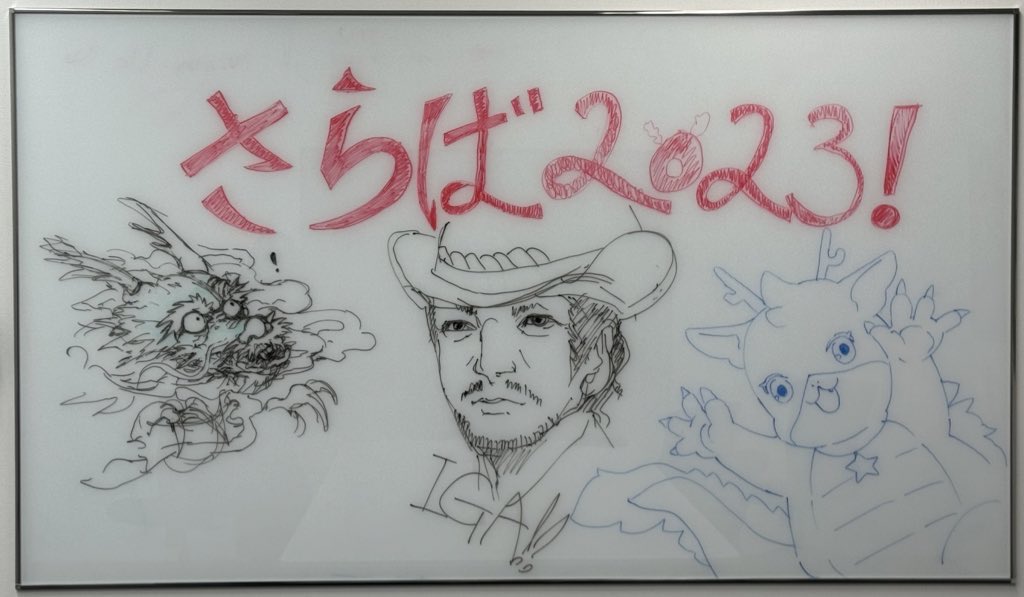 さらば2023!
!
IGA!!